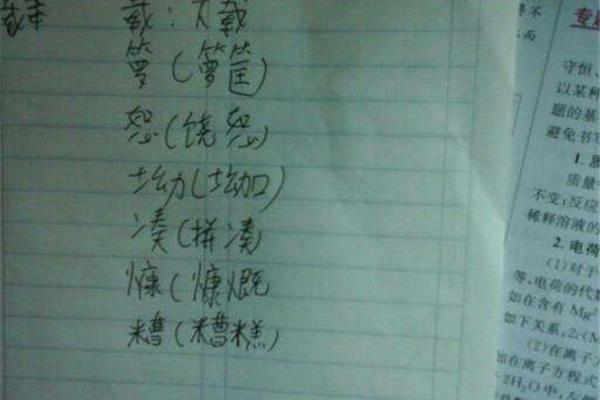 载：下载
箩（箩筐）
恕（饶恕）
凑（拼凑）
慷（慷慨
糟（糟糕）
不
而
守恒、
以某种
题的基
避免书
1.
质量
不变；反应
稀释溶液的
2. 电荷
(1)对于
等，电荷的代数
如在含有 Mg²
如下关系：2c(M
(2)在离子
如在离子方程式
2H₂O 中，左